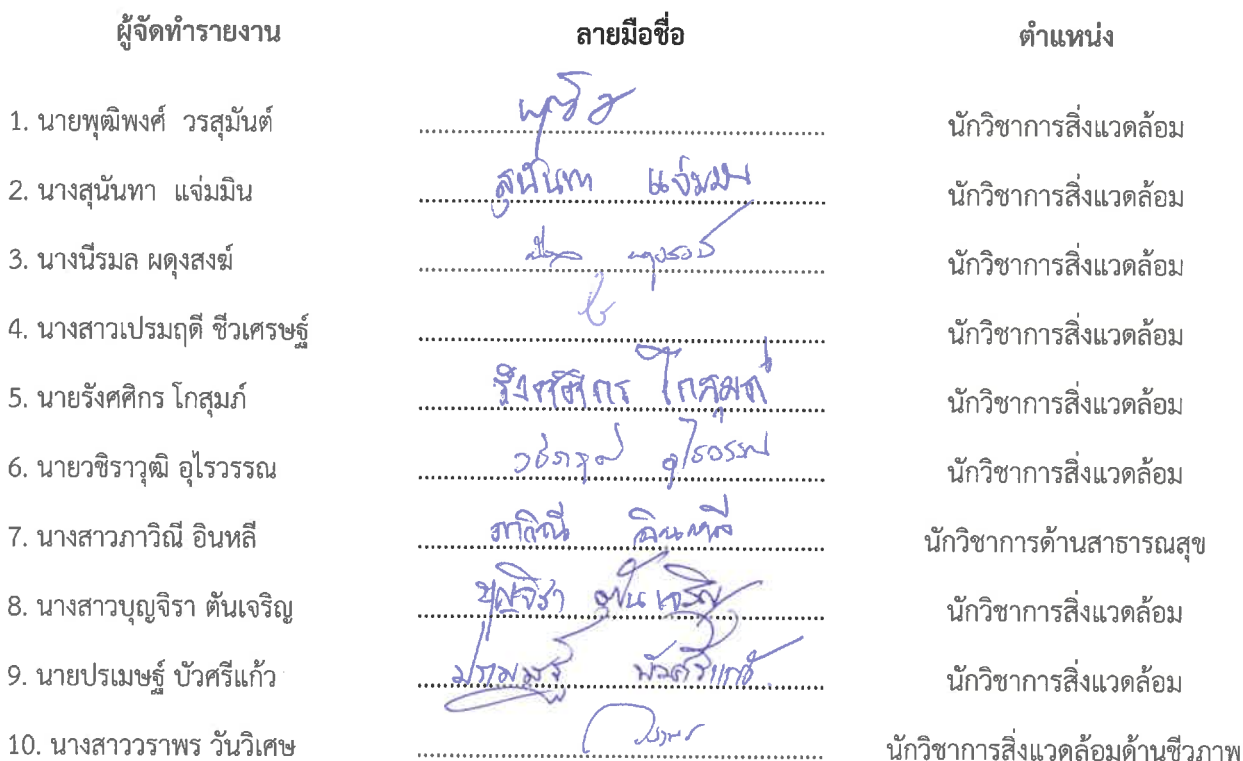 ผู้จัดทำรายงาน ลายมือชื่อ ตำแหน่ง
1. นายพุฒิพงศ์ วรสุมันต์ นักวิชาการสิ่งแวดล้อม
2. นางสุนันทา แจ่มมิน สุนันทา แจ่มมิน นักวิชาการสิ่งแวดล้อม
3. นางนีรมล ผดุงสงฆ์ นักวิชาการสิ่งแวดล้อม
4. นางสาวเปรมฤดี ชีวเศรษฐ์ นักวิชาการสิ่งแวดล้อม
5. นายรังศศิกร โกสุมภ์ รังศศิกร โกสุมภ์ นักวิชาการสิ่งแวดล้อม
6. นายวชิราวุฒิ อุไรวรรณ วชิราวุฒิ อุไรวรรณ นักวิชาการสิ่งแวดล้อม
7. นางสาวภาวิณี อินหลี ภาวิณี อินหลี นักวิชาการด้านสาธารณสุข
8. นางสาวบุญจิรา ตันเจริญ บุญจิรา ตันเจริญ นักวิชาการสิ่งแวดล้อม
9. นายปรเมษฐ์ บัวศรีแก้ว ปรเมษฐ์ บัวศรีแก้ว นักวิชาการสิ่งแวดล้อม
10. นางสาววราพร วันวิเศษ นักวิชาการสิ่งแวดล้อมด้านชีวภาพ